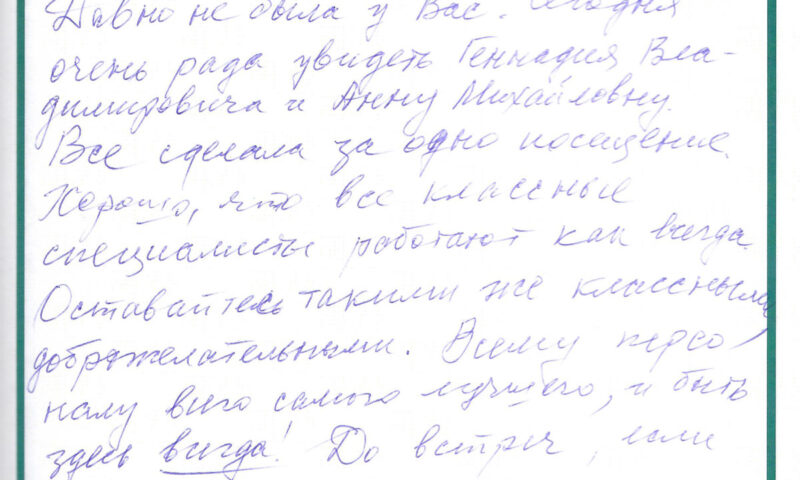 Давно не была у Вас. Сегодня
очень рада увидеть Геннадия Вла-
димировича и Анну Михайловну.
Все сделала за одно посещение.
Хорошо, что все классные
специалисты работают как всегда.
Оставайтесь такими же классными,
доброжелательными. Всему персо
налу всего самого лучшего, и быть
здесь всегда! До встреч, если